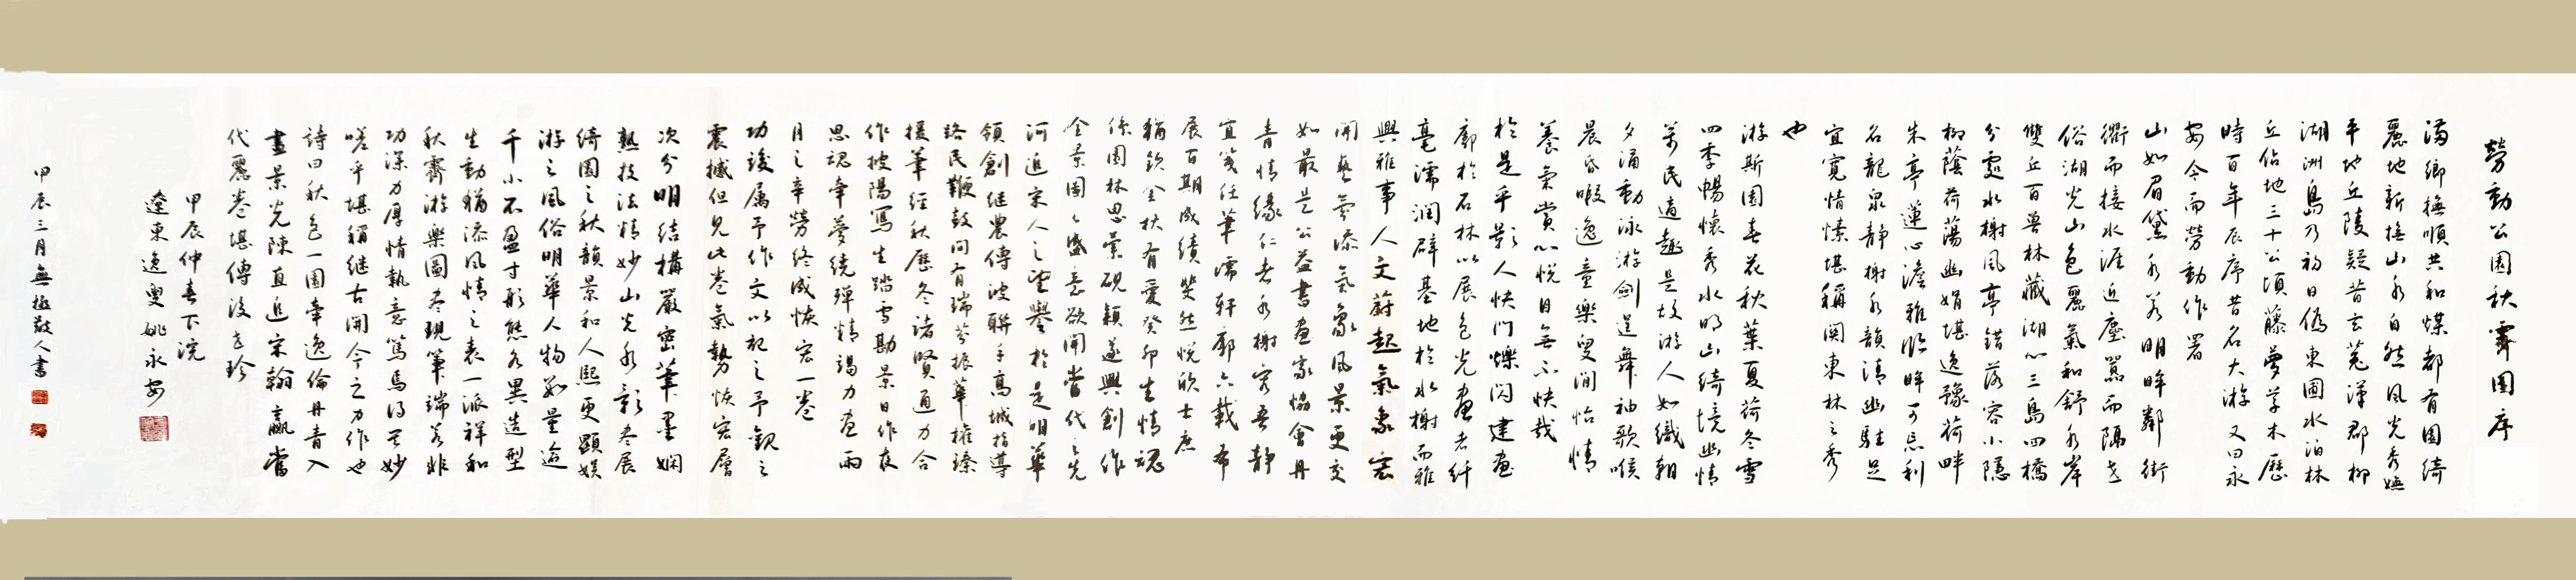 勞動公園秋霽圖序
滿鄉撫順共和煤都有園綺
麗地新撫山水自然風光秀嫵
平地丘陵疑昔玄菟漢郡柳
湖洲島乃初日偽東圃水泊林
丘佔地三十公頃藤夢草木歷
時百年辰序昔名大游又曰永
安今而勞動作署
山如眉黛水若明眸鄰街
衢而接水涯近塵囂而隔世
俗湖光山色麗氣和舒水岸
雙丘百獸林藏湖心三島四橋
分處水榭風亭錯落容小隱
柳蔭荷蕩幽娟堪逸豫荷畔
朱亭蓮心澹雅臨眸可忘利
名龍泉靜榭水韻清幽駐足
宜寬情愫堪稱關東林之秀
也
游斯園春花秋葉夏荷冬雪
四季暢懷秀水明山綺境幽情
萬民適趣是故游人如織朝
夕涌動泳游劍逞舞袖歌喉
晨昏暇逸童樂叟閒怡情
養氣賞心悅目無不快哉
於是乎影人快門爍閃建畫
廊於石林以展色光畫者纤
毫濡潤辟基地於水榭而雅
興雅事人文蔚起氣象宏
開藝氛添氣象風景更交
如最是公益書畫家協會丹
青情緣仁者水榭容吾靜
宜箋任筆濡軒廊六載布
展百期成績斐然悅欣士庶
稱欽全秋有愛癸卯生情魂
係園林思縈硯穎遂興創作
全景圖之盛意欲開當代之先
河追宋人之望譽於是明華
領創繼農傳波聯手高城指導
詻民鞭鼓問有瑞芬振華權臻
援筆經秋歷冬諸賢通力合
作披陽寫生踏雪勘景日作夜
思魂牽夢繞殫精竭力畫兩
月之辛勞終成恢宏一卷
功竣属予作文以記之予觀之
震撼但見此卷氣勢恢宏層
次分明結構嚴密筆墨嫻
熟技法精妙山光水影盡展
綺園之秋韻景和人熙更顯娱
游之風俗明華人物數量逾
千小不盈寸形態各異造型
生動稱添風情之表一派祥和
秋霽游樂圖盡現筆端若非
功深力厚情執意篤焉得其妙
嗟乎堪稱繼古開今之力作也
詩曰秋色一園牽逸倫丹青入
畫景光陳直追宋翰贏當
代麗卷堪傳後世珍
甲辰仲春下浣
遼東逸叟姚永安
甲辰三月無極散人書